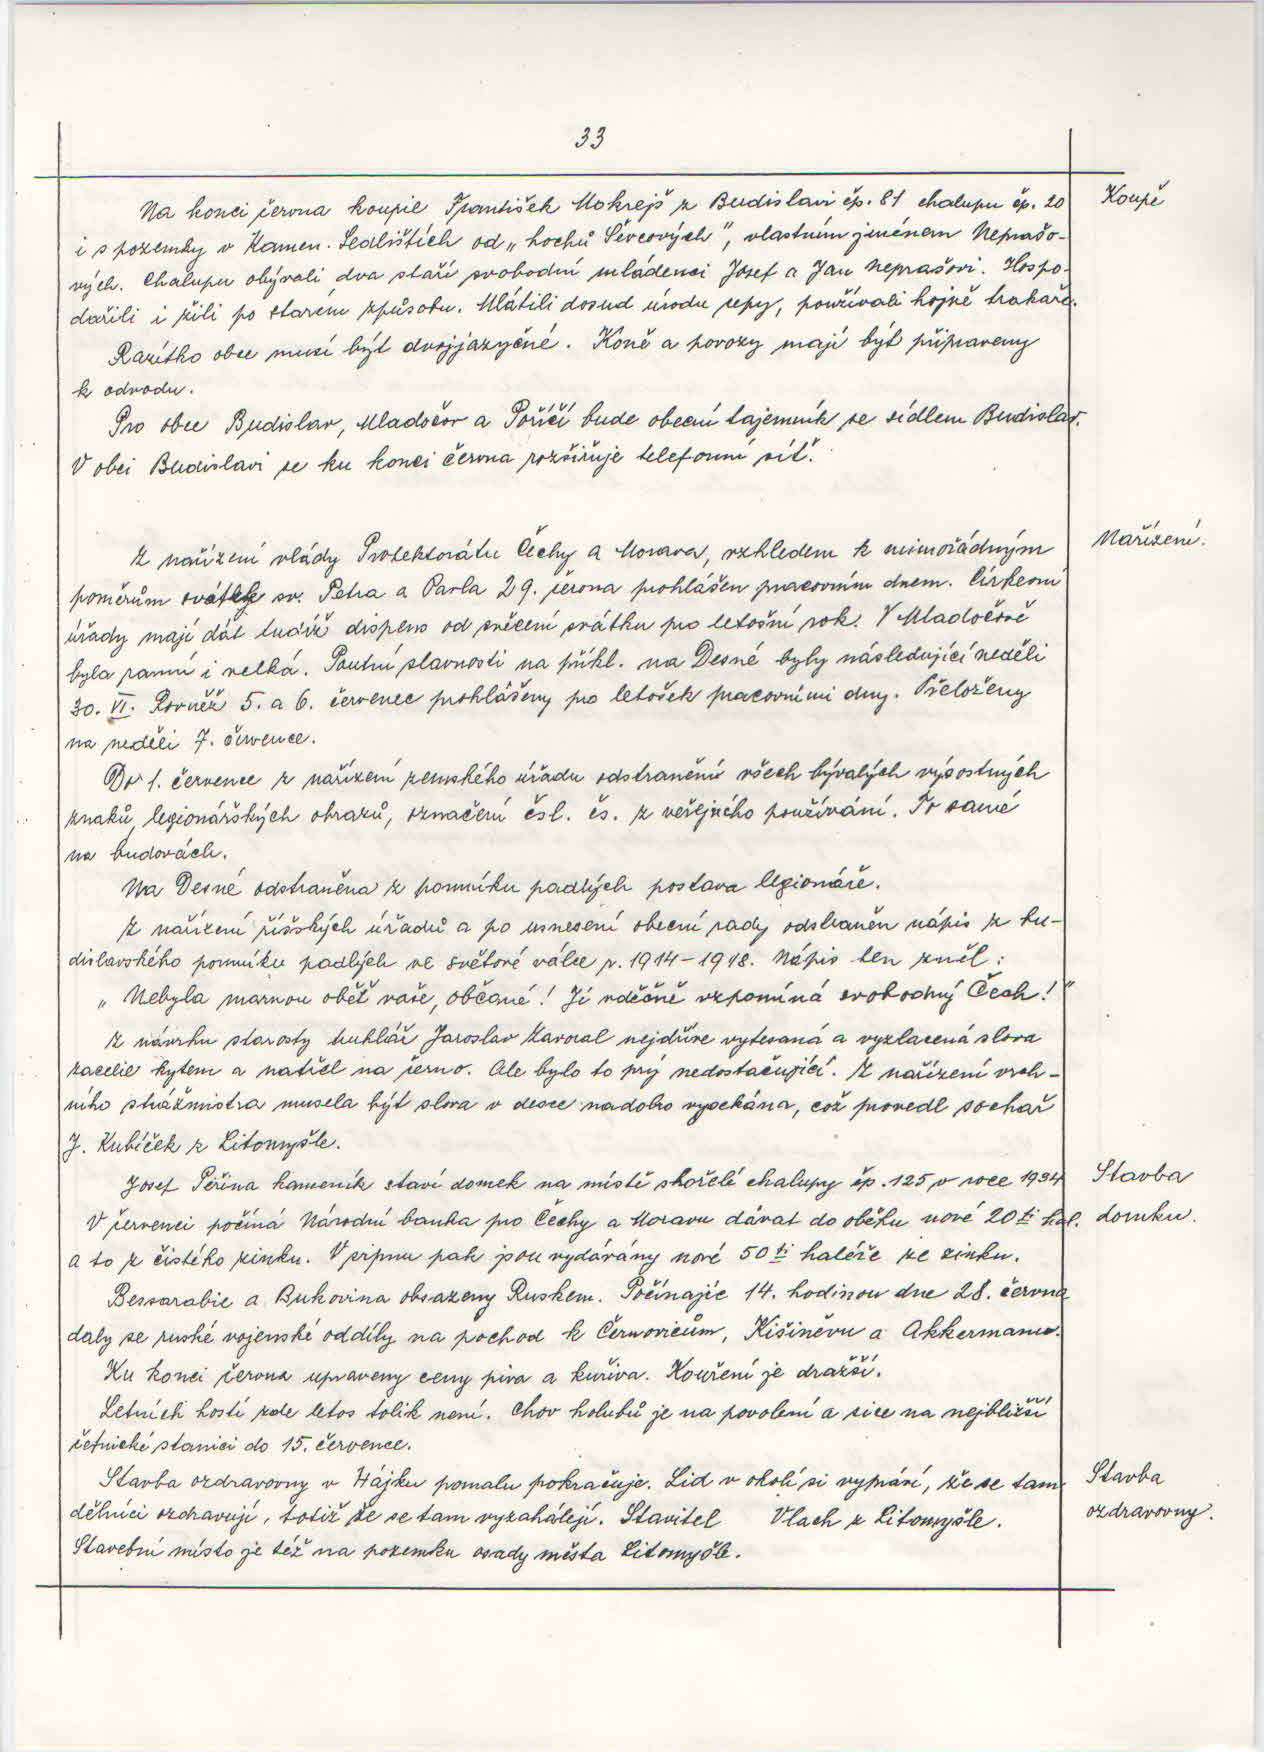 33
Na konci června koupil František Mokrejš z Budislavi čp. 81 chalupu čp. 20
Koupě
i s pozemky v Kamen. Sedlištích od „hochů Ševcových", vlastním jménem Neprašo-
vých. Chalupu obývali dva staří svobodní mládenci Josef a Jan Neprašovi. Hospo-
dařili i žili po starém způsobu. Mlátili dosud úrodu cepy, používali hojně trakaře.
Razítko obce musí být dvojjazyčné. Koně a povozy mají být připraveny
k odvodu.
Pro obce Budislav, Mladočov a Poříčí bude obecní tajemník se sídlem Budislav.
V obci Budislavi se ku konci června rozšiřuje telefonní síť.
Z nařízení vlády Protektorátu Čechy a Morava, vzhledem k mimořádným
Nařízení.
poměrům svátek sv. Petra a Pavla 29. června prohlášen pracovním dnem. Církevní
úřady mají dát tudíž dispens od svěcení svátku pro letošní rok. V Mladočově
byla ranní i velká. Poutní slavnosti na příkl. na Desné byly následující neděli
30. VI. Rovněž 5. a 6. červenec prohlášeny pro letošek pracovními dny. Přeloženy
na neděli 7. července.
Do 1. července z nařízení zemského úřadu odstranění všech bývalých výsostných
znaků, legionářských obrazů, označení čsl. čs. z veřejného používání. To samé
na budovách.
Na Desné odstraněna z pomníku padlých postava legionáře.
Z nařízení říšských úřadů a po usnesení obecní rady odstraněn nápis z bu-
dislavského pomníku padlých ve světové válce r. 1914-1918. Nápis ten zněl:
„Nebyla marnou oběť vaše, občané! Jí vděčně vzpomíná svobodný Čech!"
Z návrhu starosty truhlář Jaroslav Zavoral nejdříve vytesaná a vyzlacená slova
zacelil kytem a natřel na černo. Ale bylo to prý nedostačující. Z nařízení vrch-
ního strážmistra musela být slova v desce nadobro vysekána, což provedl sochař
J. Kubíček z Litomyšle.
Josef Peřina kameník staví domek na místě shořelé chalupy čp. 125 v roce 1934
Stavba
domku.
V červenci počíná Národní banka pro Čechy a Moravu dávat do oběhu nové 20ti hal.
a to z čistého zinku. V srpnu pak jsou vydávány nové 50ti haléře ze zinku.
Bessarabie a Bukovina obsazeny Ruskem. Počínajíc 14. hodinou dne 28. června
daly se ruské vojenské oddíly na pochod k Černovicům, Kišiněvu a Akkermanu.
Ku konci června upraveny ceny piva a kuřiva. Kouření je dražší.
Letních hostí zde letos tolik není. Chov holubů je na povolení a sice na nejbližší
četnické stanici do 15. července.
Stavba ozdravovny v Hájku pomalu pokračuje. Lid v okolí si vypráví, že se tam
Stavba
ozdravovny.
dělníci ozdravují, totiž že se tam vyzahálejí. Stavitel Vlach z Litomyšle.
Stavební místo je též na pozemku osady města Litomyšle.